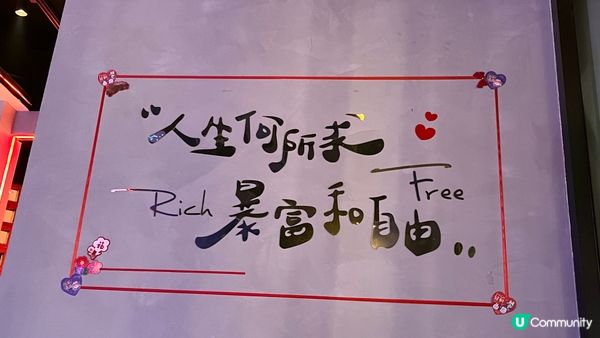 “人生何所求
Free
Rich 暴富和自由”
福
U Community